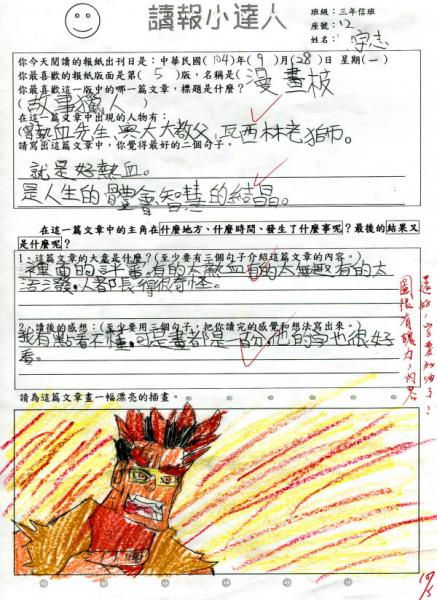 讀報小達人
班級：三年信班
座號：12
姓名：宇志
你今天閱讀的報紙出刊日是：中華民國(104)年(9)月(28)日 星期(一)
你最喜歡的報紙版面是第(5)版，名稱是(漫畫板
你最喜歡這一版中的哪一篇文章，標題是什麼？
(故事獵人)
在這一篇文章中出現的人物有：
熱血先生與大大教父，瓦西林老獅。
請寫出這篇文章中，你覺得最好的三個句子。
就是好熱血。
是人生的體會智慧的結晶。
在這一篇文章中的主角在什麼地方、什麼時間、發生了什麼事呢？最後的結果又
是什麼呢？
1、這篇文章的大意是什麼？(至少要有三個句子介紹這篇文章的內容。)
裡面的評審，有的太熱血有的太無趣有的太
活潑，人都長得很奇怪。
2、讀後的感想：(至少要用三個句子，把你讀完的感覺和想法寫出來。)
我有點看不懂，可是畫都是一百分，他的字也很好
看。
請為這篇文章畫一幅漂亮的插畫。
圖很有魄力，內容
還好，字要加油了！
10/5